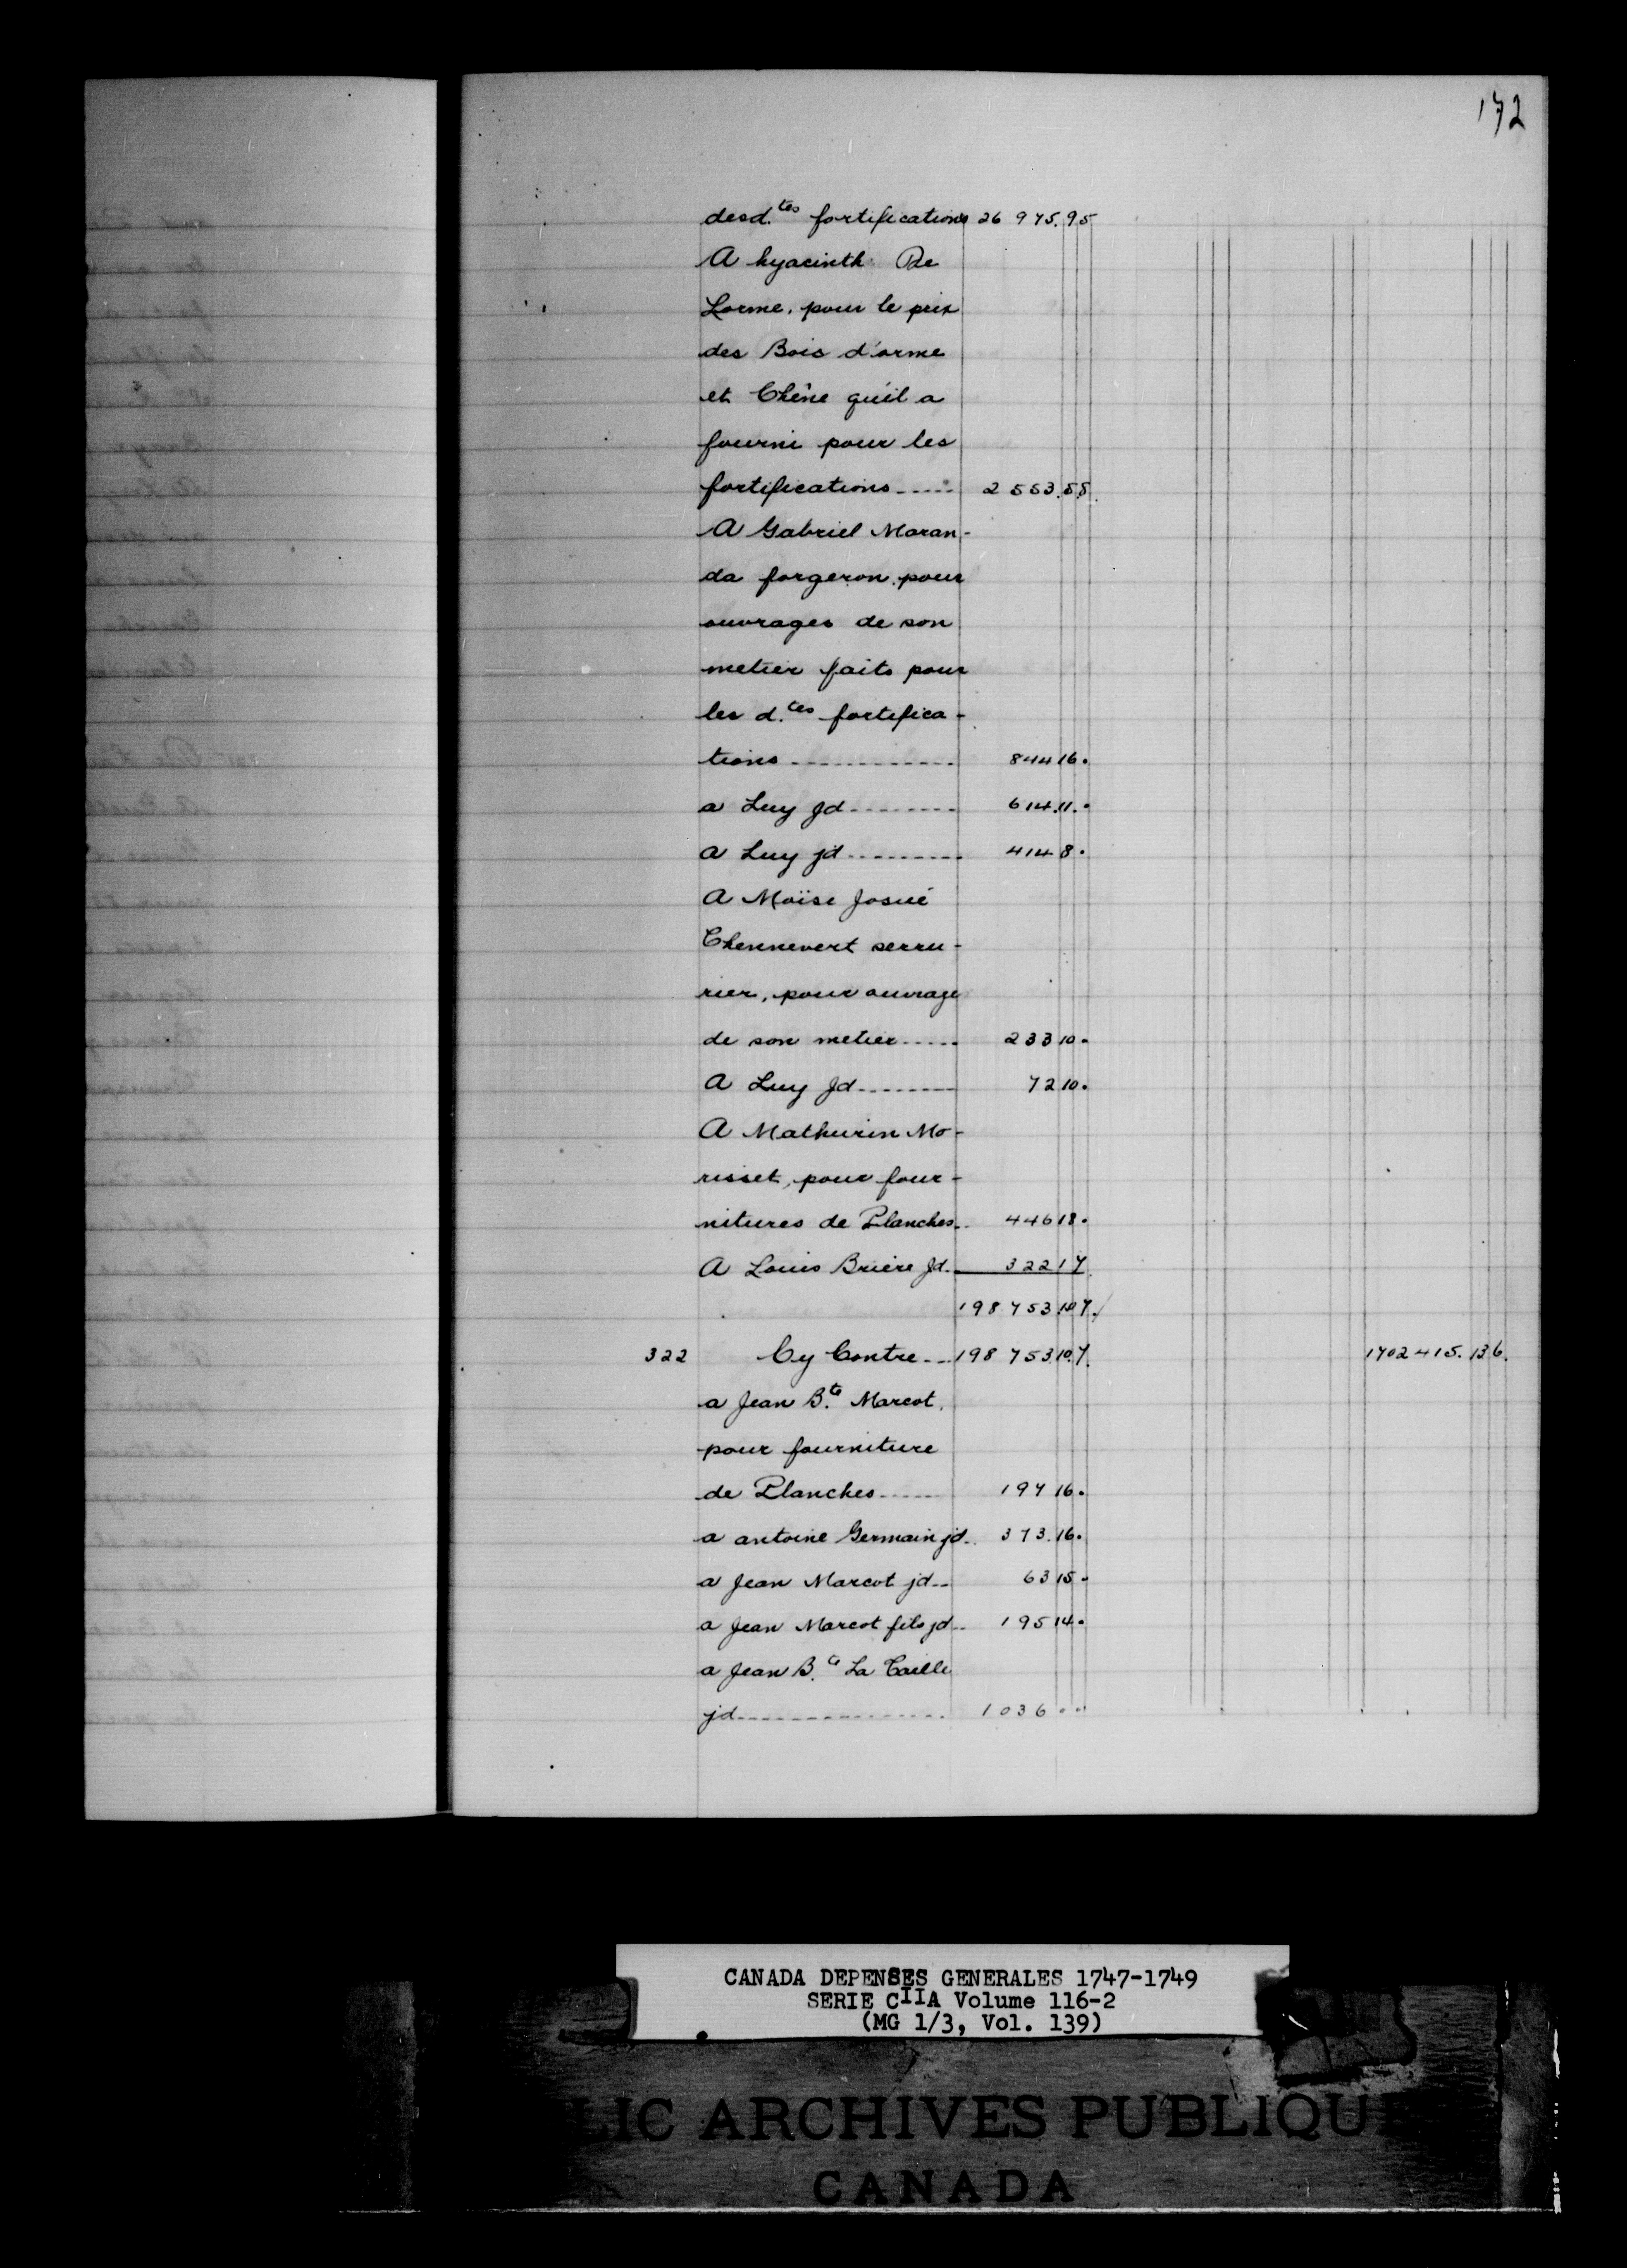 172
desd.tes fortifications 26 975. 9 5
A hyacinth De
Lorme, pour le prix
des Bois d'orme
et Chêne qu'il a
fourni pour les
fortifications ..... 2 553. 5 8.
A Gabriel Moran-
da forgeron pour
ouvrages de son
metier faits pour
les d.tes fortifica-
tions ............ 844 16 .
a Luy Jd ........ 614. 11 .
a Luy jd ......... 414 8 .
A Moïse Josué
Chennevert serru-
rier, pour ouvrage
de son metier ..... 233 10 .
A Luy Jd ........ 72 10 .
A Mathurin Mo-
risset, pour four-
nitures de Planches .. 446 18 .
A Louis Briere Jd. 322 1 7
198 753 10 7.
322 Cy Contre ... 198 753 10. 7. 1702 415. 13 6.
a Jean B.te Marcot,
pour fourniture
de Planches ...... 197 16 .
a antoine Germain jd.. 373. 16 .
a Jean Marcot jd... 63 15 .
a Jean Marcot fils jd.. 195 14 .
a Jean B.te La Caille
jd ................ 1036 . .
CANADA DEPENSES GENERALES 1747-1749
SERIE CIIA Volume 116-2
(MG 1/3, Vol. 139)
LIC ARCHIVES PUBLIQU
CANADA